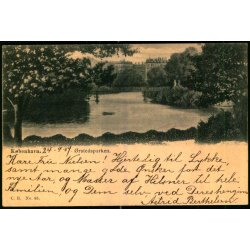 København. 24-9-01 Ørstedsparken.
Kære Frue Nielsen! Hjertelig til Lykke,
samt mange gode Ønsker for det
nye Aar og Masser af Hilsner til hele
Familien, og Dem selv ved Deres hengivne
Astrid Berthelsen.
C. R. No. 68.